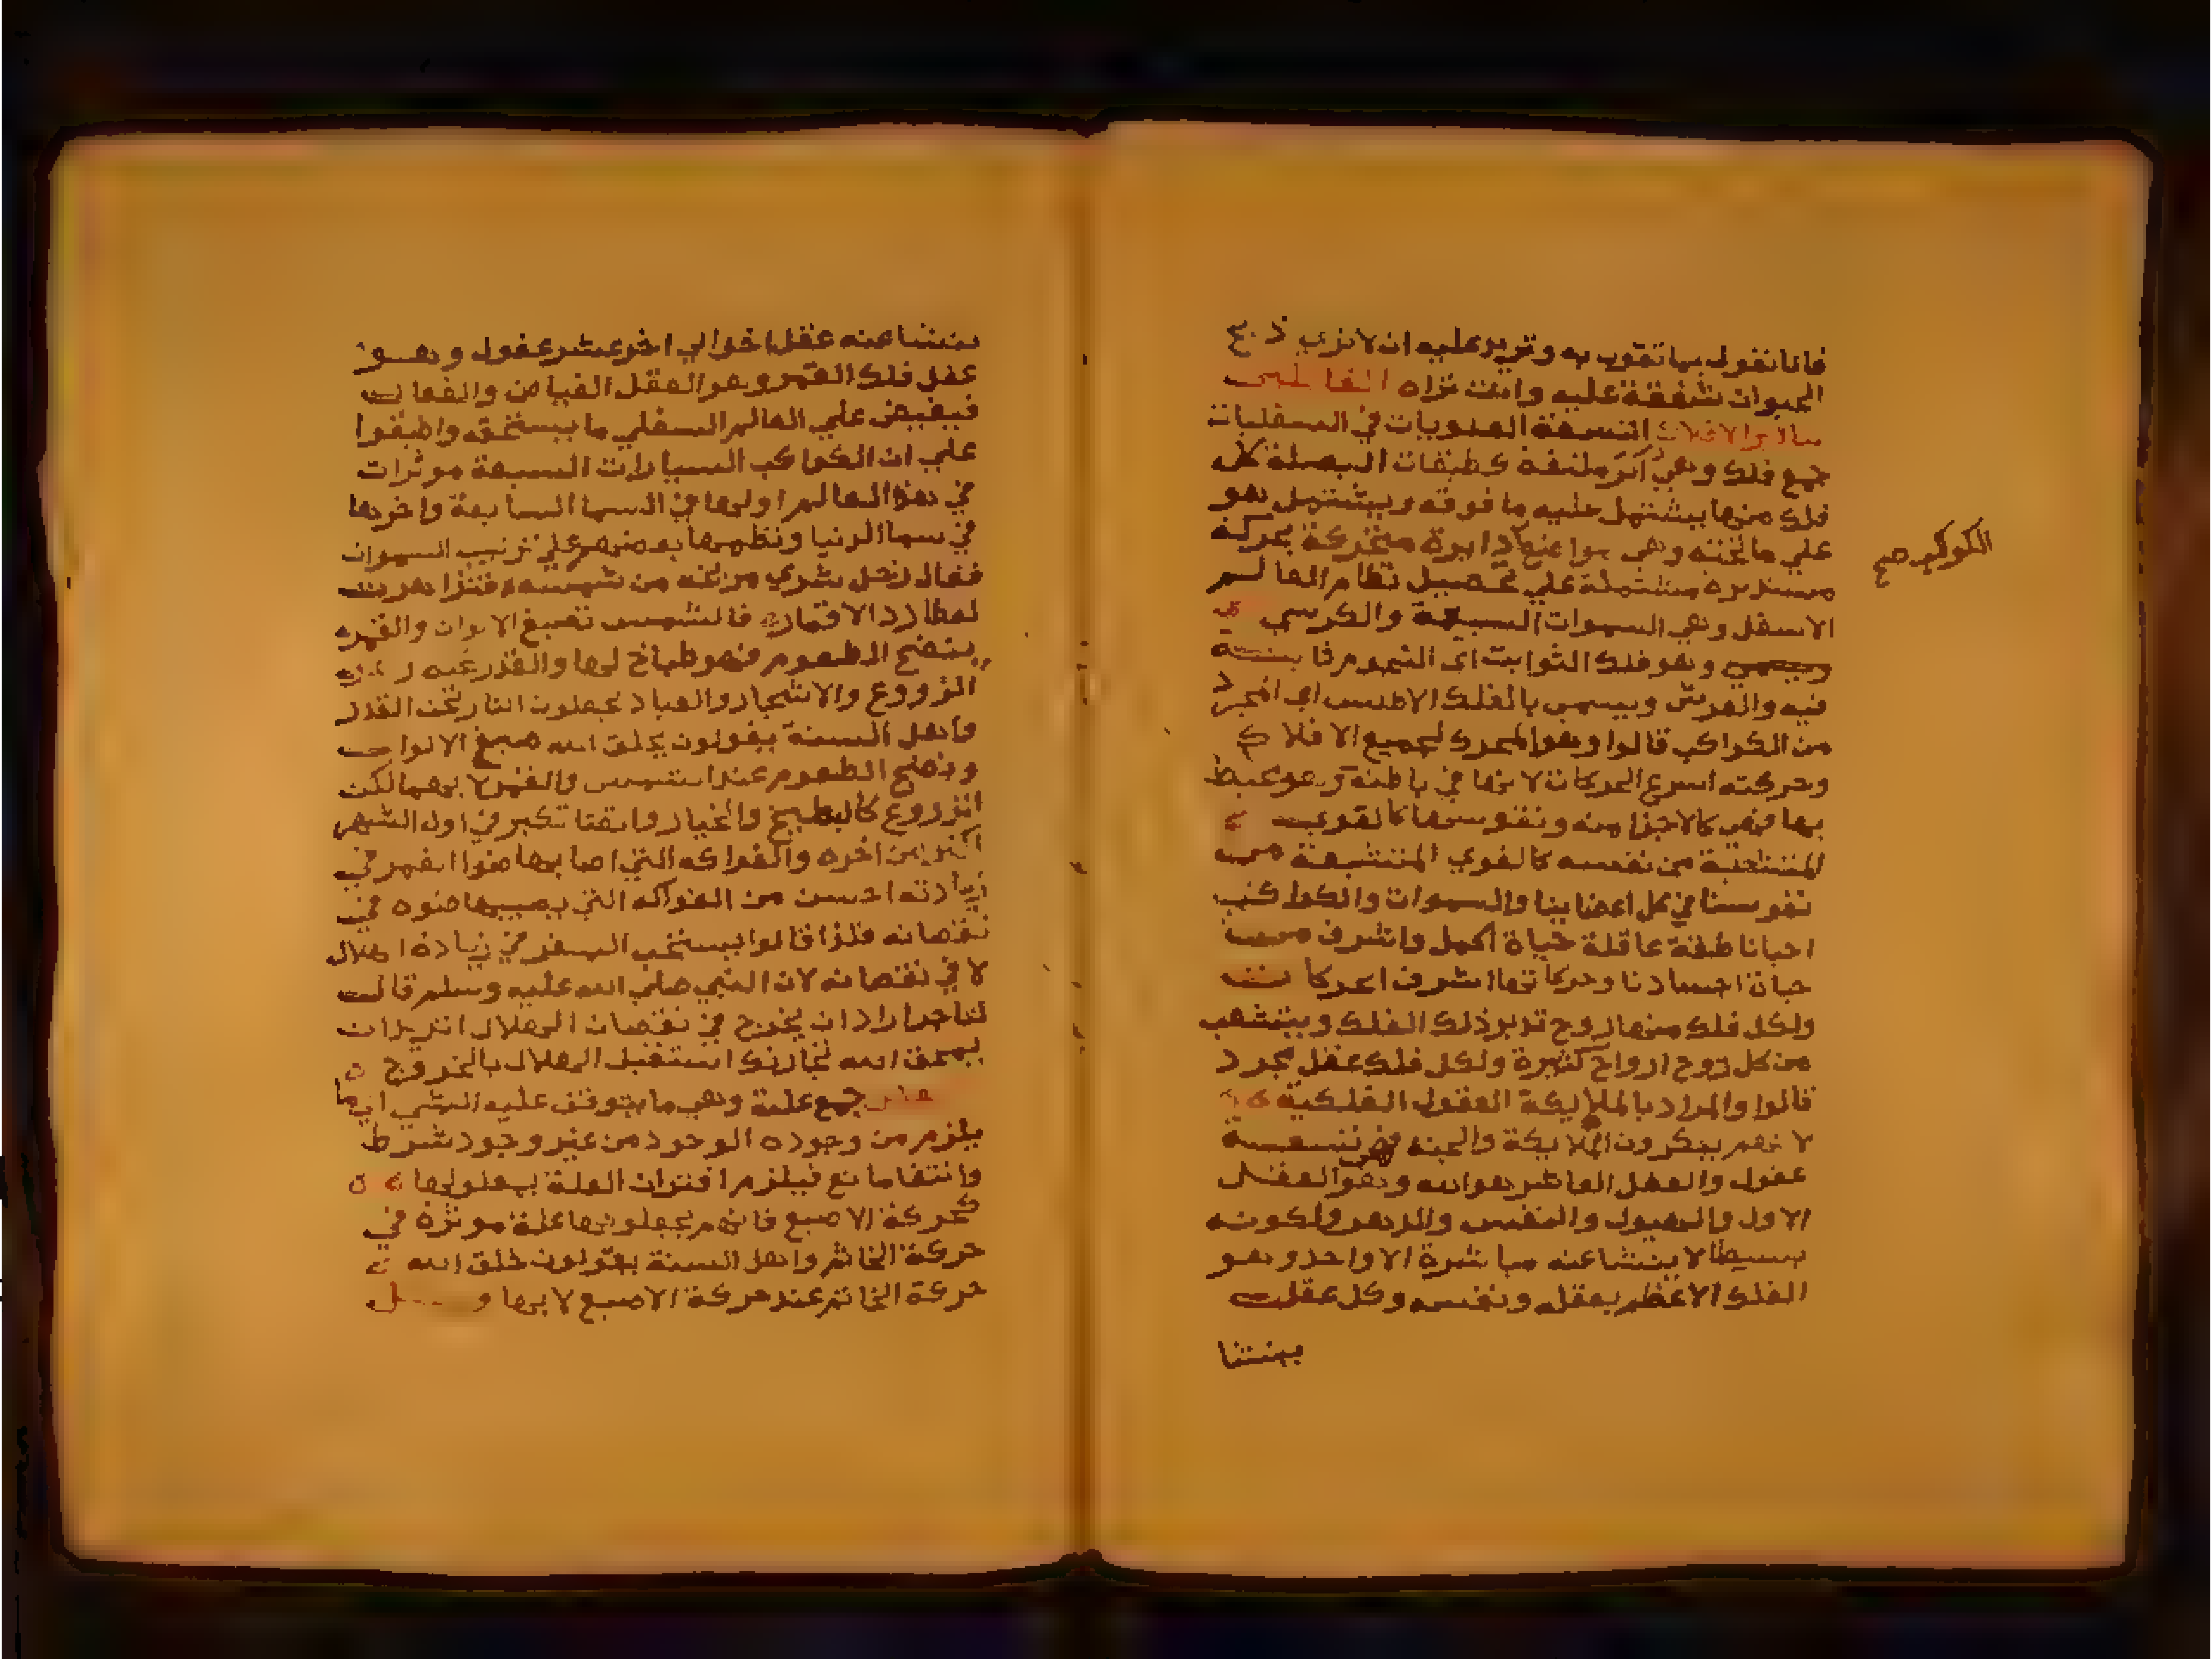 فانا نقول بما تقول به وتزيد عليه ان لا نري ذبح
الحيوان شفقة عليه وانت تراه القايلين
بتاثير الافلاك التسعة العلويات في السفليات
جمع فلك وهي اكر ملتفة كطبقات البصلة كل
فلك منها يشتمل عليه ما فوقه ويشتمل هو
علي ما تحته وهي دايرة متحركة بحركة
مستديرة مشتملة علي تحصيل نظام العالم
الاسفل وهي السموات السبعة والكرسي
ويسمي وهو فلك الثوابت اي النجوم ثابتة
فيه والعرش ويسمي بالفلك الاطلس اي المجرد
من الكواكب قالوا وهو المحرك لجميع الافلاك
وحركته اسرع الحركات لانها في باطنه وهو محيط
بها فهي كالاجزا منه ونفوسها كالقوي
من نفسه كالقوي المنتشعبة من
نفوسنا في كل اعضاينا والسموات والكواكب
احيا ناطقة عاقلة حياة اكمل واشرف من
حياة اجسادنا وحركاتها اشرف الحركات
ولكل فلك منها روح تدبر ذلك الفلك ويتشعب
من كل روح ارواح كثيرة ولكل فلك عقل مجرد
قالوا والمراد بالملايكة العقول الفلكية
لانهم ينكرون الملايكة والجنة فهي تسعة
عقول والعقل العاشر هو الله وهو العقل
الاول والهيول والنفس والدهر ولكونه
بسيطا لا ينشا عنه مباشرة الا واحد وهو
الفلك الاعظم بعقله ونفسه وكل عقل
ينشا
الكوكب صح
ينشا عنه عقل اخر الي اخر عشر عقول وهو
عقل فلك القمر وهو العقل الفياض والفعال
فيفيض علي العالم السفلي ما يستحق واطبقوا
علي ان الكواكب السيارات السبعة موثرات
في هذا العالم اولها في السما السابعة واخرها
في سما الدنيا ونظمها بعضهم علي ترتيب السموات
فقال زحل شري مريخه من شمسه فتزاهرت
لعطارد الاقمار فالشمس تصبغ الالوان والقمر
ينضج الطعوم فهو طباخ لها والقدر
الزروع والاشجار والعباد يجعلون النار تحت القدر
واهل السنة يقولون يخلق الله صبغ الالوان
ونضج الطعوم عند الشمس والقمر لا بهما لكن
الزروع كالبطيخ والخيار والقثا تكبر في اول الشهر
اكثر من اخره والفواكه التي اصابها ضوا القمر في
زيادته احسن من الفواكه التي يصيبها ضوه في
نقصانه فلذا قالوا يستحب السفر في زيادة الهلال
لا في نقصانه لان النبي صلي الله عليه وسلم قال
لتاجر اراد ان يخرج في نقصان الهلال اتريد ان
يمحق الله تجارتك استقبل الهلال بالخروج
جمع علة وهي ما يتوقف عليه الشي اي ما
يلزم من وجوده الوجود من غير وجود شرط
وانتفا مانع فيلزم اقتران العلة بمعلولها
كحركة الاصبع فانهم يجعلونها علة موثرة في
حركة الخاتم واهل السنة يقولون خلق الله
حركة الخاتم عند حركة الاصبع لا بها